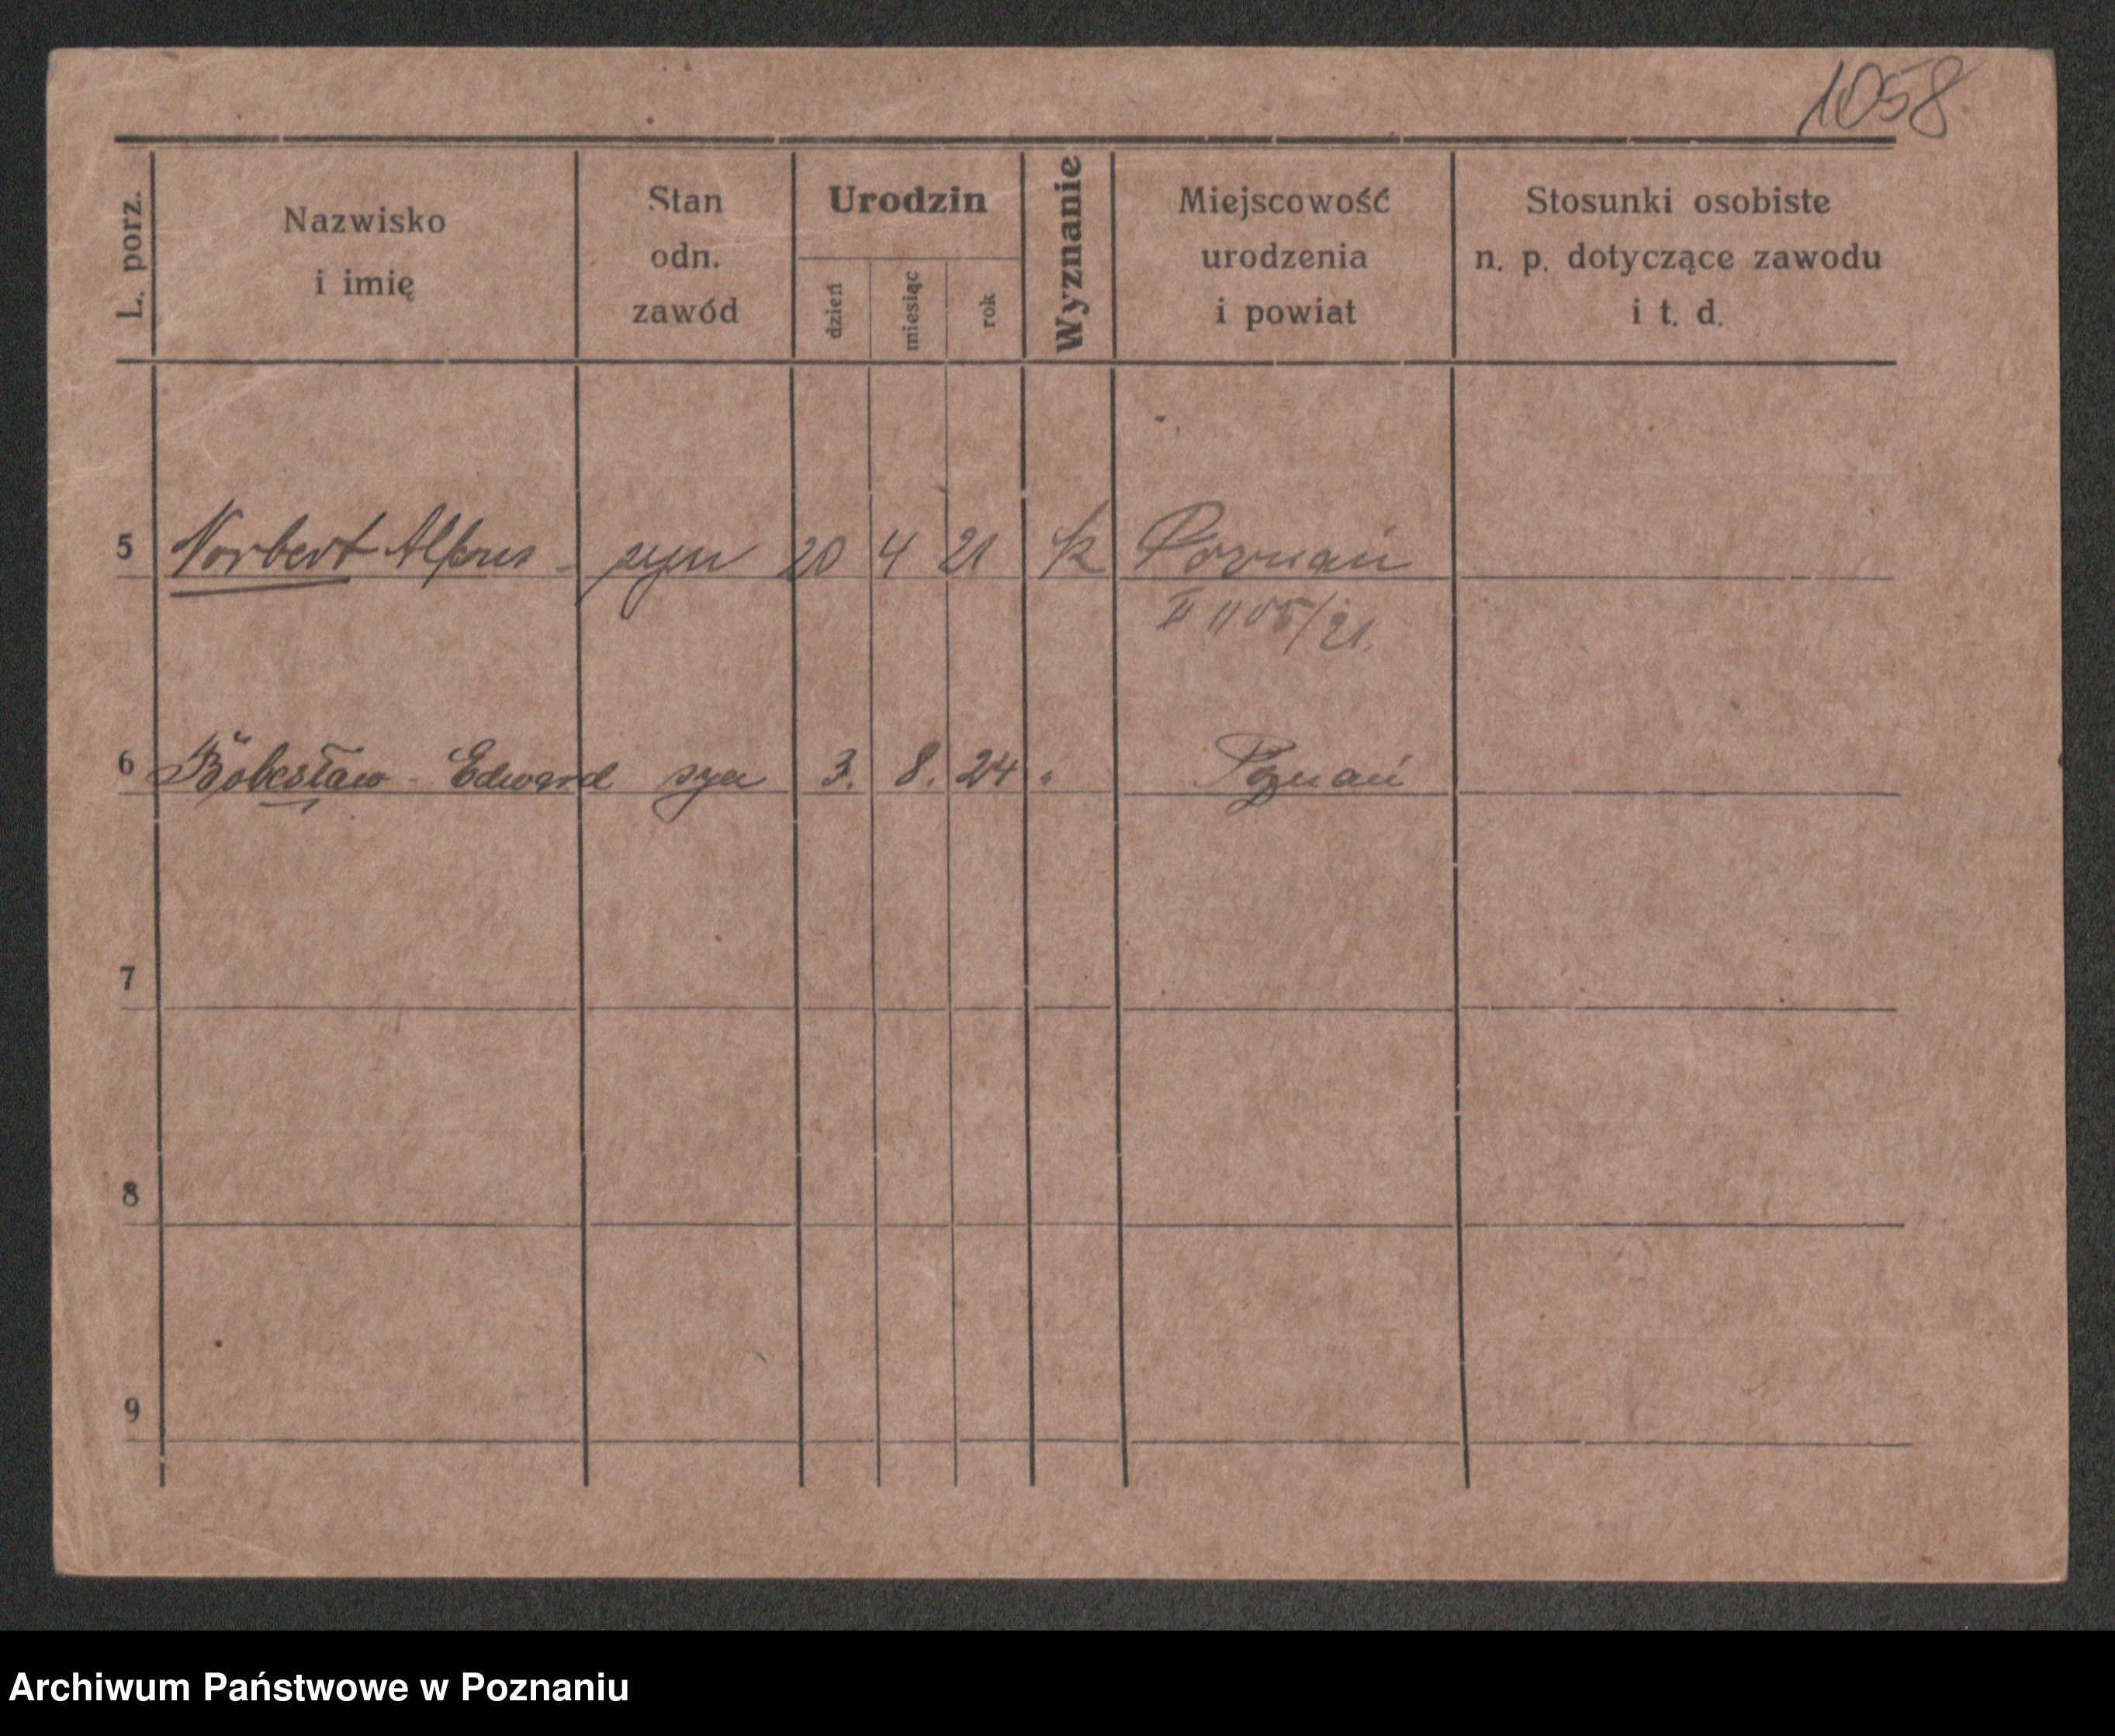 1058
L. porz.
Nazwisko
i imię
Stan
odn.
zawód
Urodzin
dzień
miesiąc
rok
Wyznanie
Miejscowość
urodzenia
i powiat
Stosunki osobiste
n. p. dotyczące zawodu
i t. d.
5 Norbert Alfons - syn 20 4 21 k Poznań
II 1105/21.
6 Edward syn 3. 8. 24 " Poznań
7
8
9
Archiwum Państwowe w Poznaniu